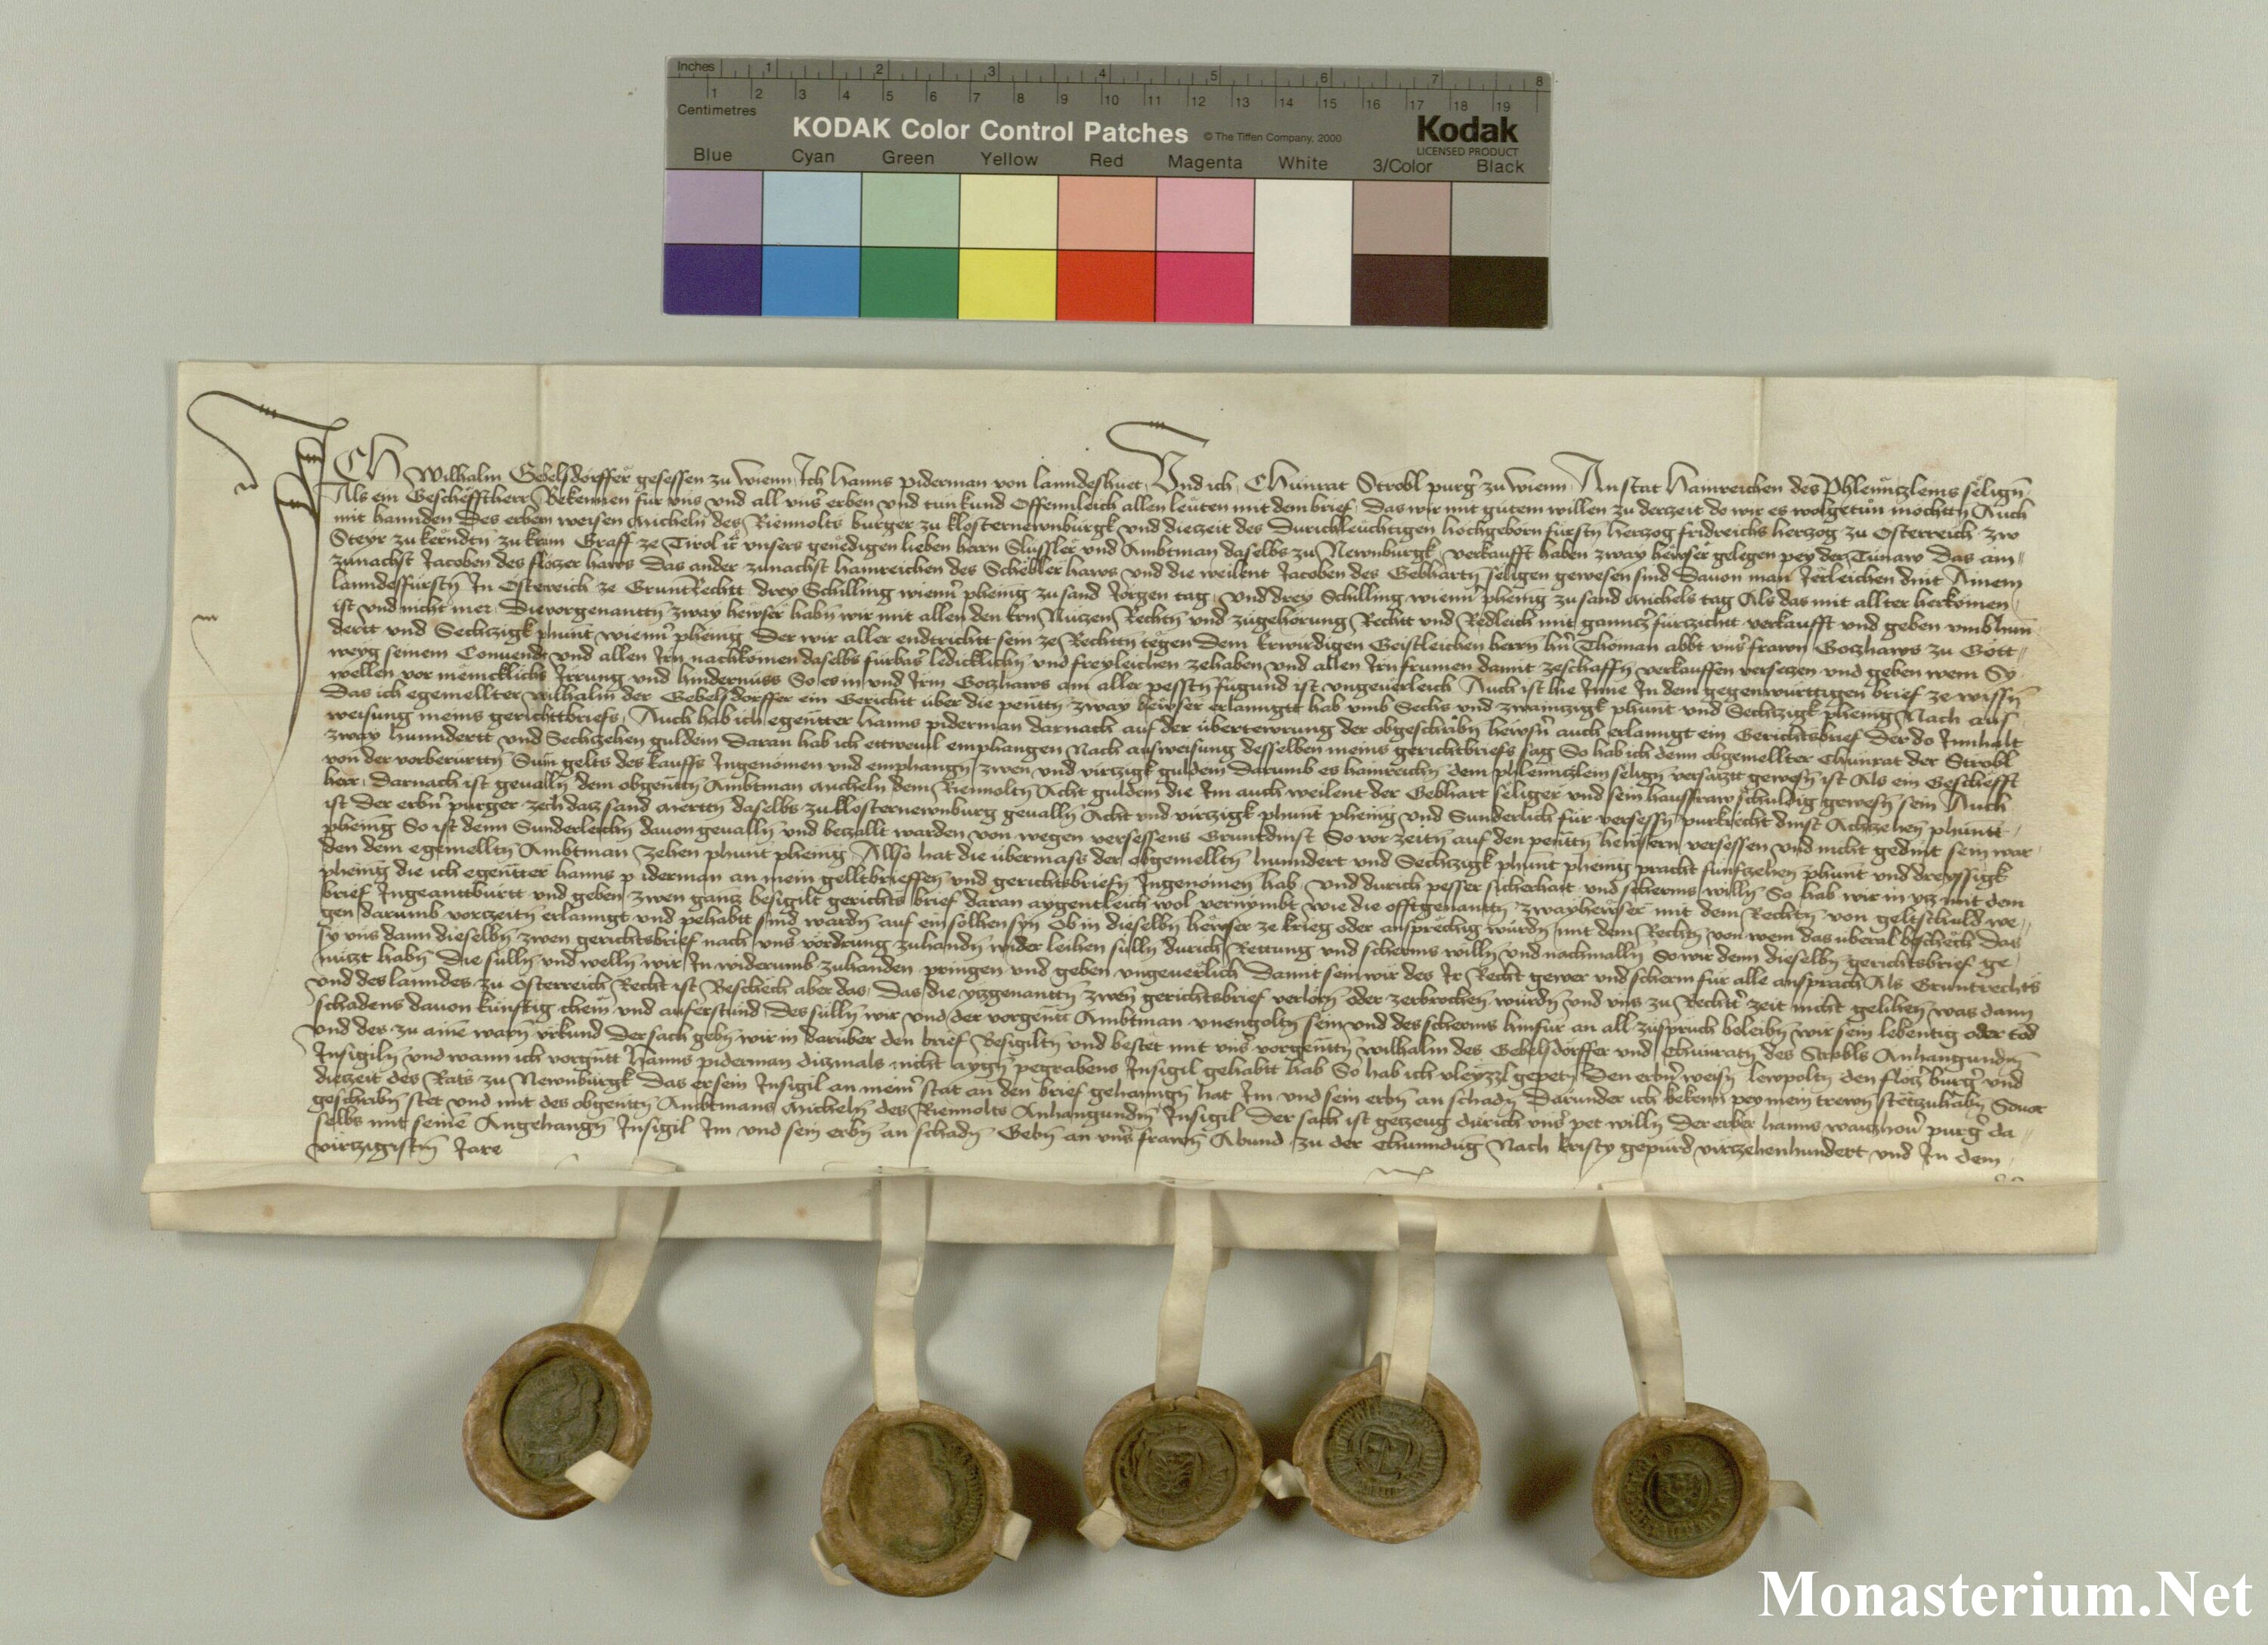 Inches 1 2 3 4 5 6 7 8
1 2 3 4 5 6 7 8 9 10 11 12 13 14 15 16 17 18 19
Centimetres
KODAK Color Control Patches © The Tiffen Company, 2000 Kodak
LICENSED PRODUCT
Blue Cyan Green Yellow Red Magenta White 3/Color Black
ICH Wilhalm Gebelsdorffer gesessen zu Wienn Ich Hanns piderman von lanndeshuet Vnd ich Chunrat Strobl purg̉ zu wienn Anstat Hainreichen des Phlenntzleins selign̄
Als ein Gescheffther Bekennen fur vns vnd all vns̉ erben vnd tun kund Offennleich allen leuten mit dem brief Das wir mit gutem willen zu der zeit do wir es wolgetun mochtn̄ Auch
mit hannden Des erbern weisen Micheln des Riennolts burger zu klosternewnburgk vnd diezeit des Durichleuchtigen hochgeborn fursten herzog fridreichs herzog zu Osterreich zw
Steyr zu kerndtn̄ zu krain Graff ze Tirol ꝛc̄ vnsers genedigen lieben herrn Slussler vnd Ambtman daselbs zu Newnburgk verkaufft haben zway hewser gelegen pey der Tunaw Das ain
zunachst Jacoben des flotzer haws Das ander zunachst hainreichen des Schebler haws vnd die weilent Jacoben des Gebhartn̄ seligen gewesen sind Dauon man Jerleichen dint Ainem
lanndesfurstn̄ In Osterreich ze GruntRechtt drey Schilling wienn̉ phenig zu sand Jorgen tag vnd drey Schilling wienn̉ phenig zu sand Michels tag Als das mit allter herkomen
ist vnd nicht mer Die vorgenantn̄ zway hewser habn̄ wir mit allen den ern Nutzen Rechtn̄ vnd zugehorung Recht vnd Redleich mit gantz̉ furtzicht verkaufft vnd geben vmb hun
dertt vnd Sechtzigk phunt wienn̉ phenig Der wir aller endtrichtt sein ze Rechttn̄ tegen Dem Erwirdigen Geistleichen herrn hn̉ Thoman abbt vns̉ frawn Gotzhaws zu Gott
weyg seinem Conuendt vnd allen Irn nachkomen daselbs furbas ledicklichn̄ vnd freyleichen zehaben vnd allen Irn frumen damit zeschaffn̄ verkauffen versetzen vnd geben wem Sy
wellen vor menicklichs Irrung vnd hindernuss So es in vnd Irm Gotzhaws am aller pesstn̄ fugund ist vngeuerleich Auch ist hie Inne In dem gegenwurttigen brief ze wissn̄
Das ich egemellter wilhalm der Gebelsdorffer ein Gericht uber die peutn̄ zway hewser erlanngtt hab vmb Sechs vnd zwaintzigk phunt vnd Sechtzigk phenig Nach aus
weisung meins gerichttbriefs Auch hab ich egenter hanns piderman darnach auf der ubertewrung der obgeschribn̄ hewsr̄n auch erlanngt ein Gerichtsbrief Der do Innhalt
zway hunndertt vnd Sechtzehen guldein Daran hab ich ettweuil emphangen Nach ausweisung desselben meins gerichtbriefs sag So hab ich denn obgemellter Chunrat der Strobl
von der vorberurttn̄ Sum gelts des kauffs Ingenomen vnd emphangn̄ zwen vnd virtzigk guldein Darumb es hainreichn̄ dem phlenntzlein selign̄ versatztt gewesn̄ ist Als ein Gescheft
herr Darnach ist geualln̄ dem obgentn̄ Ambtman Micheln dem Riennoltn̄ Acht guldein die Im auch weilent der Gebhart seliger vnd sein hausfraw schuldig gewesn̄ sein Auch
ist Der erbn̉ purger zech datz sand Merttn̄ daselbs zu klosternewnburg geualln̄ Acht vnd virtzigk phunt phenig vnd Sunderlich fur versessn̄ purkrecht dinst Achtzehen phuntt
phenig So ist denn Sunderleichn̄ dauon geualln̄ vnd betzallt warden von wegen versessens Gruntdinst So vor zeitn̄ auf den peutn̄ hewsern versessen vnd nicht gedint sein war
den dem egemelltn̄ Ambtman zehen phunt phenig Allso hat die ubermass der obgemelltn̄ hunndert vnd Sechtzigk phunt phenig pracht funftzehen phunt vnd dreyssigk
phenig die ich egenter hanns piderman an mein gelltbrieffen vnd gerichtsbriefn̄ Ingenomen hab vnd durich pesser sicherhait vnd scherms willn̄ So hab wir in ytz mit dem
brief Ingeanttburtt vnd geben zwen gantz besigilt gerichts brief daran aygentleich wol vernymbt wie die offtgenantn̄ zway hewser mit dem Rechtn̄ von geltschuld we
gen darumb vortzeitn̄ erlanngt vnd pehabtt sind wardn̄ auf ein solhen syn Ob in dieselbn̄ hewser ze krieg oder ansprechig wurdn̄ mit dem Rechtn̄ von wem das uberal beschech Das
sy vns dann dieselbn̄ zwen gerichtsbrief nach vns̉ vordrung zuhandn̄ wider leihen sulln̄ durich Rettung vnd scherms willn̄ vnd nachmalln̄ So wir denn dieselbn̄ gerichtsbrief ge
nutzt habn̄ Die sulln̄ vnd welln̄ wir In widerumb zuhanden pringen vnd geben vngeuerlich Damit sein wir des Ir Recht gewer vnd scherm fur alle ansprach Als Gruntrechts
vnd des lanndes zu Osterreich Recht ist Beschech aber das Das die ytzgenantn̄ zwen gerichtsbrief verlorn̄ oder zerbrochen wurdn̄ vnd vns zu Rechtt̉ zeit nicht gelihen was dann
schadens dauon kunftig chem vnd auferstund Des sulln̄ wir vnd der vorgent Ambtman vnengoltn̄ sein vnd des scherms hinfur an all zuspruch beleibn̄ wir sein lebentig oder tod
vnd des zu aine warn̄ vrkund Der sach gebn̄ wir in daruber den brief Besigiltn̄ vnd bestet mit vns̉ vorgentn̄ wilhalm des Gebelsdorffer vnd Chunratn̄ des Strobls Anhangundn̄
Insigiln̄ vnd wann ich vorgnt̉ hanns piderman ditzmals nicht aygn̄ pegrabens Insigil gehabtt hab So hab ich vleyzzl gepetn̄ Den erbn̉ weisn̄ lewpoltn̄ den flotz̉ burg̉ vnd
diezeit des Rats zu Newnburgk Das er sein Insigil an mein̉ stat an den brief gehanngn̄ hat Im vnd sein erbn̄ an schadn̄ Darunder ich bekenn pey mein trewn̄ stetzuhabn̄ Souor
geschribn̄ stet vnd mit des obgentn̄ Ambtmans Micheln̄ des Riennolts Anhangundn̄ Insigil Der sach ist getzeug durich vns̉ pet willn̄ Der erber hanns purg̉ da
selbs mit seinē Angehangn̄ Insigil Im vnd sein erbn̄ an schadn̄ Gebn̄ an vns̉ frawn̄ Abund zu der Chunndug Nach kristy gepurd virtzehenhundert vnd In dem
virtzigistn̄ Jare
Monasterium.Net